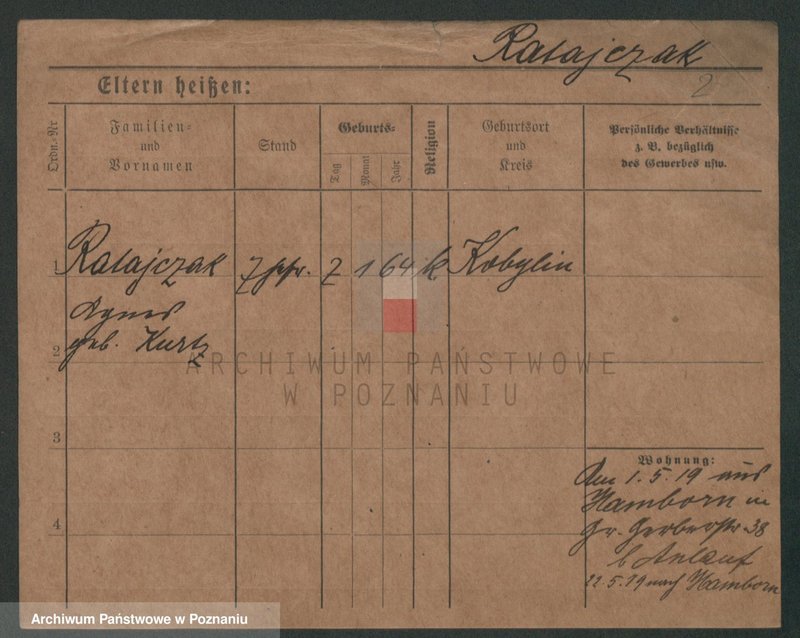 Ratajczak
2
Eltern heißen:
Ordn.-Nr
Familien-
und
Vornamen
Stand
Geburts-
Tag
Monat
Jahr
Religion
Geburtsort
und
Kreis
Persönliche Verhältnisse
z. B. bezüglich
des Gewerbes usw.
1 Ratajczak 7 1 64 k Kobylin
Agnes
geb. Kurtz
2
ARCHIWUM PAŃSTWOWE
W POZNANIU
3
Wohnung:
Am 1.5.19 aus
Hamborn in
Gr. Gerberstr. 38
4
b Anlauf
22.5.19 nach Hamborn
Archiwum Państwowe w Poznaniu